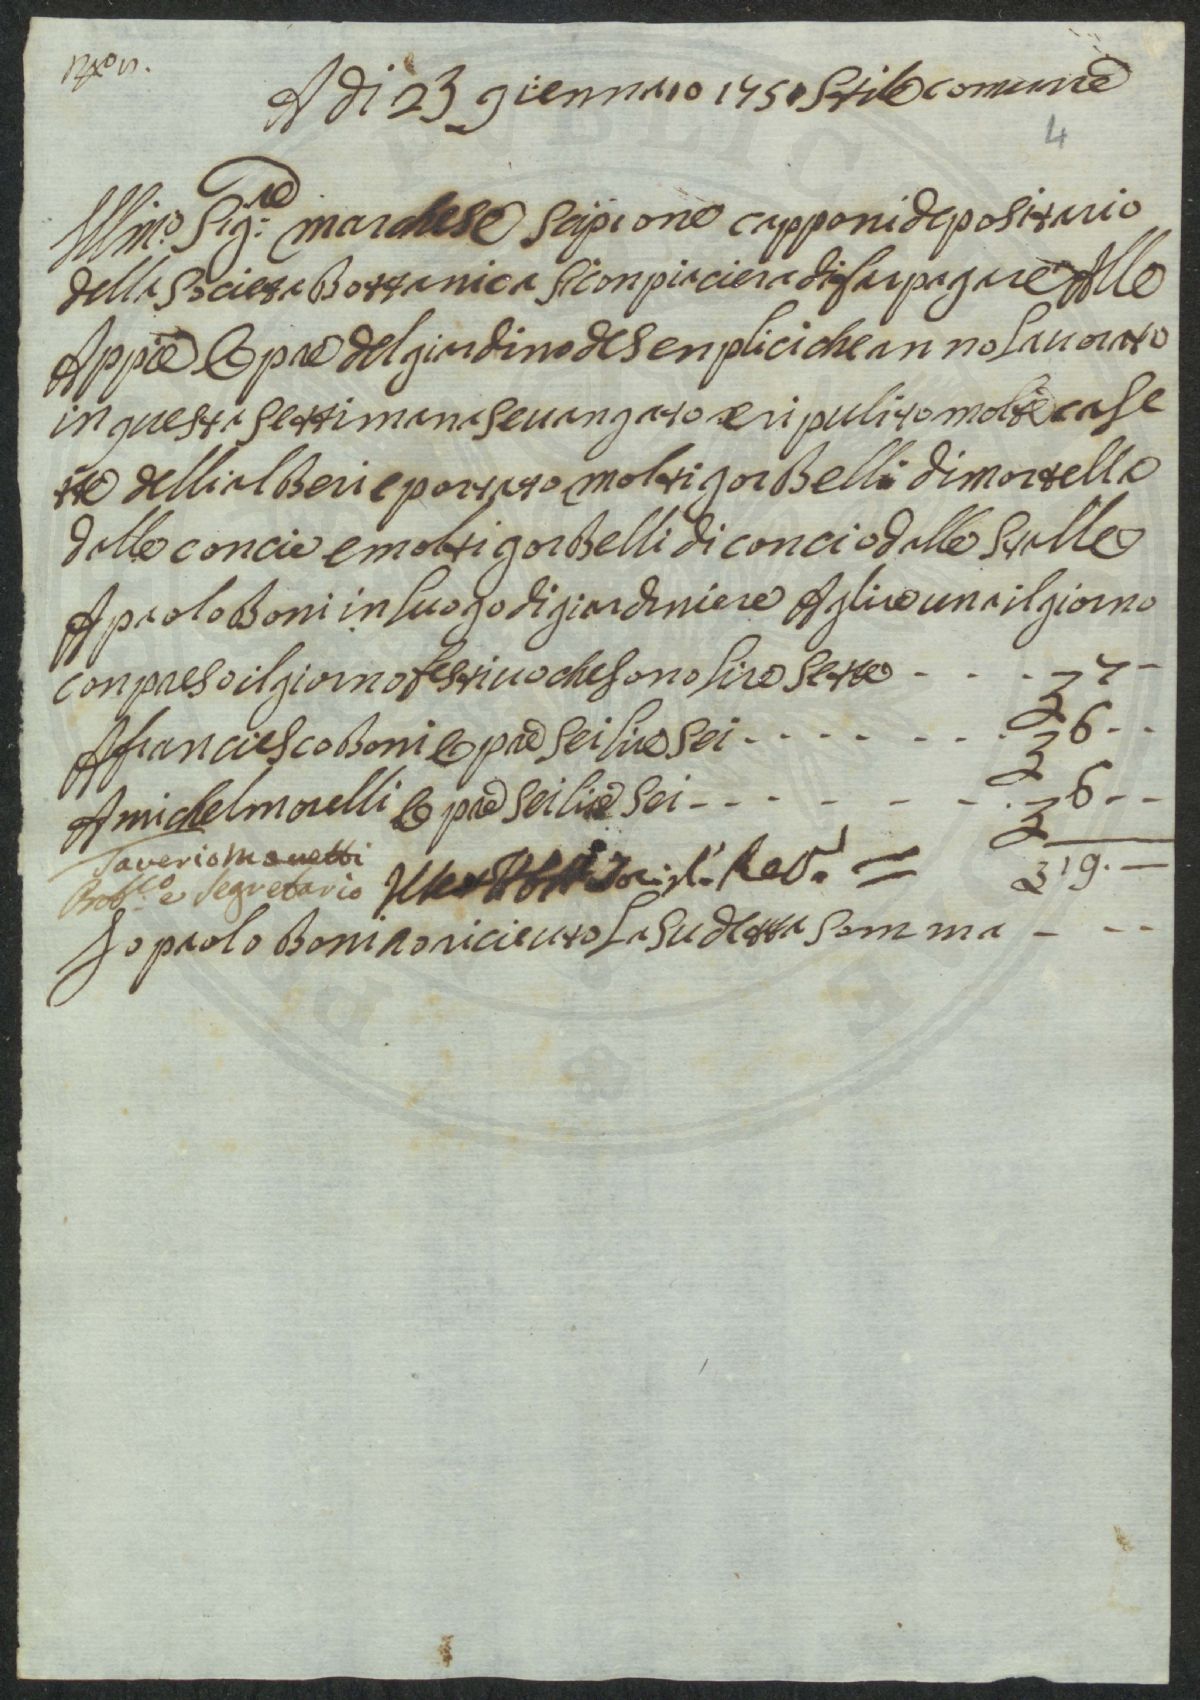 A di 23 giennaio 1751 Stile comune
4
Illmo. Sigre. marchese Scipione capponi depositario
della Societa Bottanica Si conpiaciera di far pagare Alle
Appie Opre del giardino de Senplici che anno Lauorato
in questa Settimana Se uangato e ripulito molte case
tte delli alberi e portato molti gorbelli di mortella
dalle concie e molti gorbelli di concio dalle Stalle
A paolo Boni in luogo di giardiniere A lire una il giorno
conpreso il giorno festiuo che sono lire Sette - - - - 7 -
A franciesco Boni Opre Sei lire Sei - - - - - - - 6 - -
A michel morelli Opre Sei lire Sei - - - - - - - 6 - -
Saverio Manetti
e Segretario
19. -
Io paolo Boni o riceuto La Sudetta Somma - - -